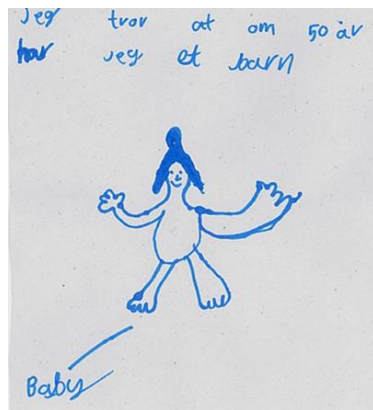 Jeg tror at om 50 år
har jeg et barn
Baby